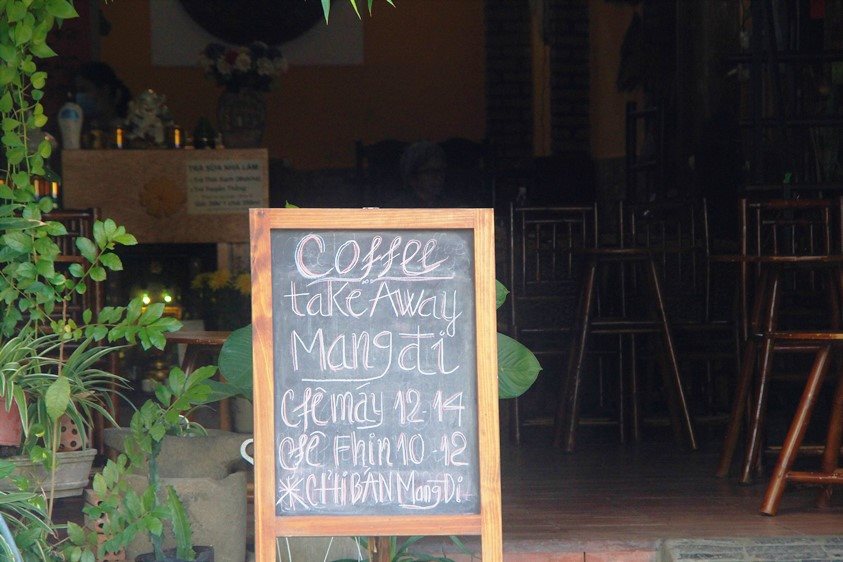 TRÀ SỮA NHÀ LÀM
Coffee
take Away
Mang đi
Cfê máy 12-14
Cfê Fhin 10-12
*CHỈ BÁN Mang Đi